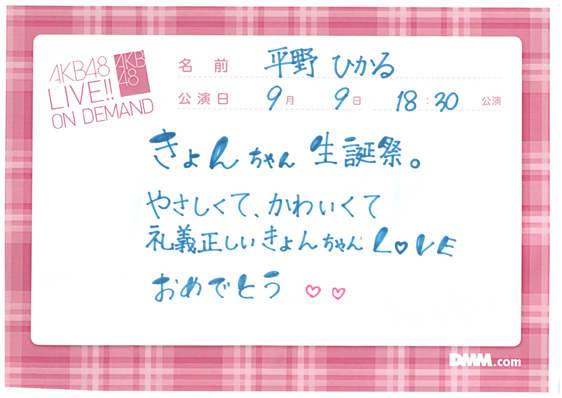 AKB48
LIVE!!
ON DEMAND
AKB
48
名前 平野 ひかる
公演日 9月 9日 18:30 公演
きょんちゃん 生誕祭。
やさしくて、かわいくて
礼義正しいきょんちゃん L♡VE
おめでとう ♡♡
DMM.com